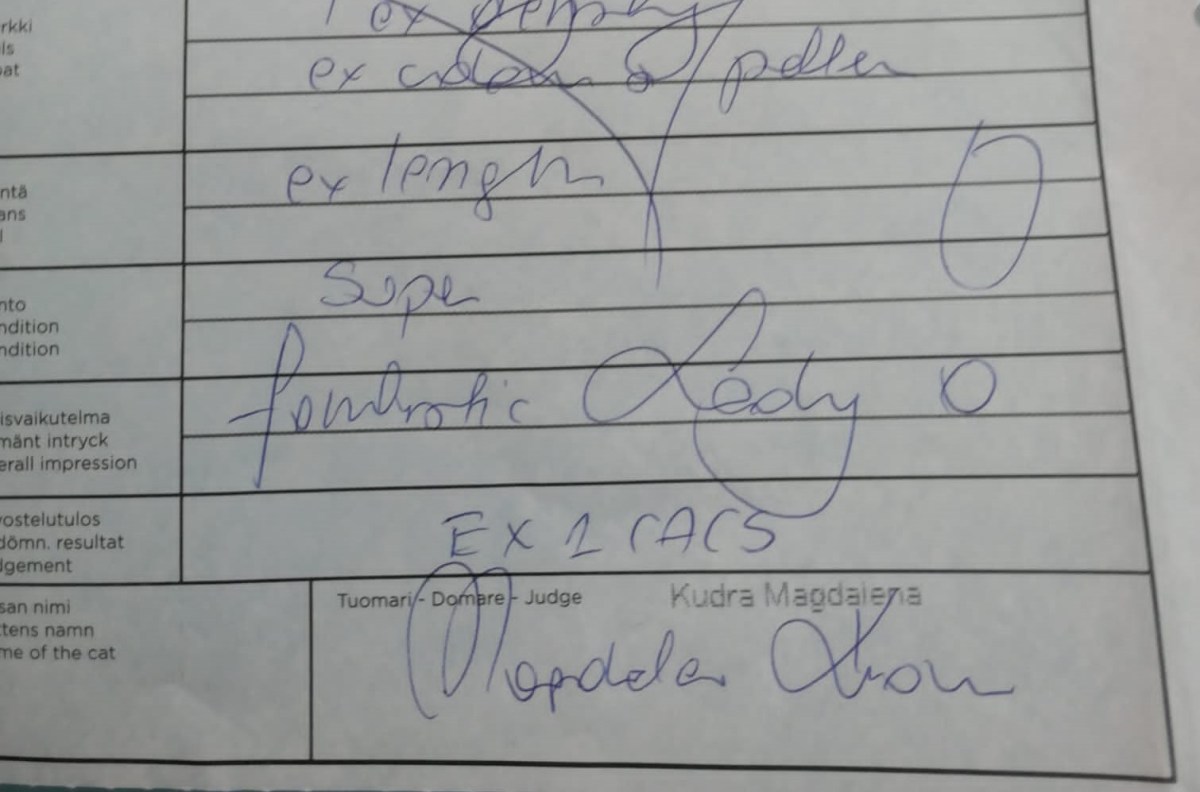 rkki
ls
pat
ex density
ex colour & pattern
ntä
ans
l
ex length
nto
ndition
ndition
Super
isvaikutelma
mänt intryck
erall impression
fantastic Lady
vostelutulos
dömn. resultat
dgement
EX 1 CACS
san nimi
ttens namn
me of the cat
Tuomari - Domare - Judge
Kudra Magdalena
Magdalena